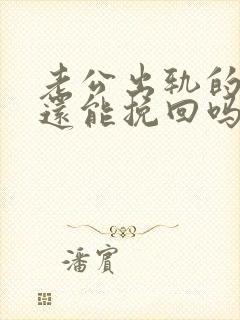 老公出轨的
還能挽回吗
潘賓